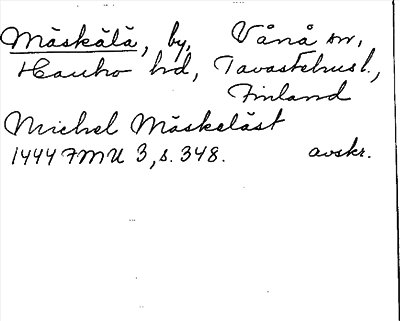 Mäskälä, by, Vånå sn,
Hauho hd, Tavastehusl.,
Finland
Michel Mäskeläst
1444 FMU 3, s. 348. avskr.